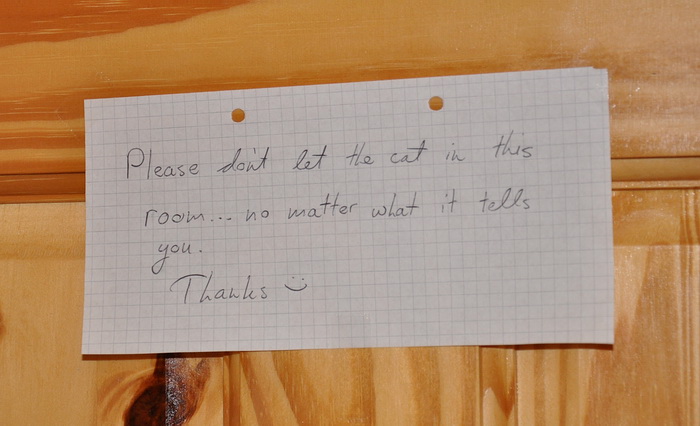 Please don't let the cat in this
room... no matter what it tells
you.
Thanks :)